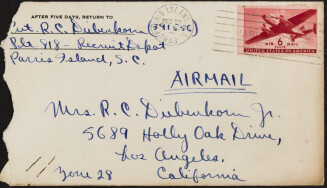 AFTER FIVE DAYS, RETURN TO
Pvt. R.C. Diebenkorn
Plt. 918 - Recruit Depot
Parris Island, S.C.
AIR MAIL
6¢
UNITED STATES OF AMERICA
AIRMAIL
Mrs. R.C. Diebenkorn Jr.
5689 Holly Oak Drive,
Los Angeles,
Zone 28 California